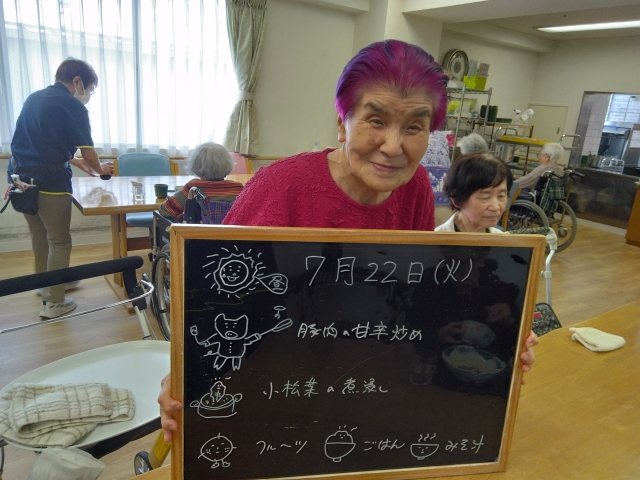 昼 7月22日(火)
豚肉の甘辛炒め
小松菜の煮浸し
フルーツ ごはん みそ汁